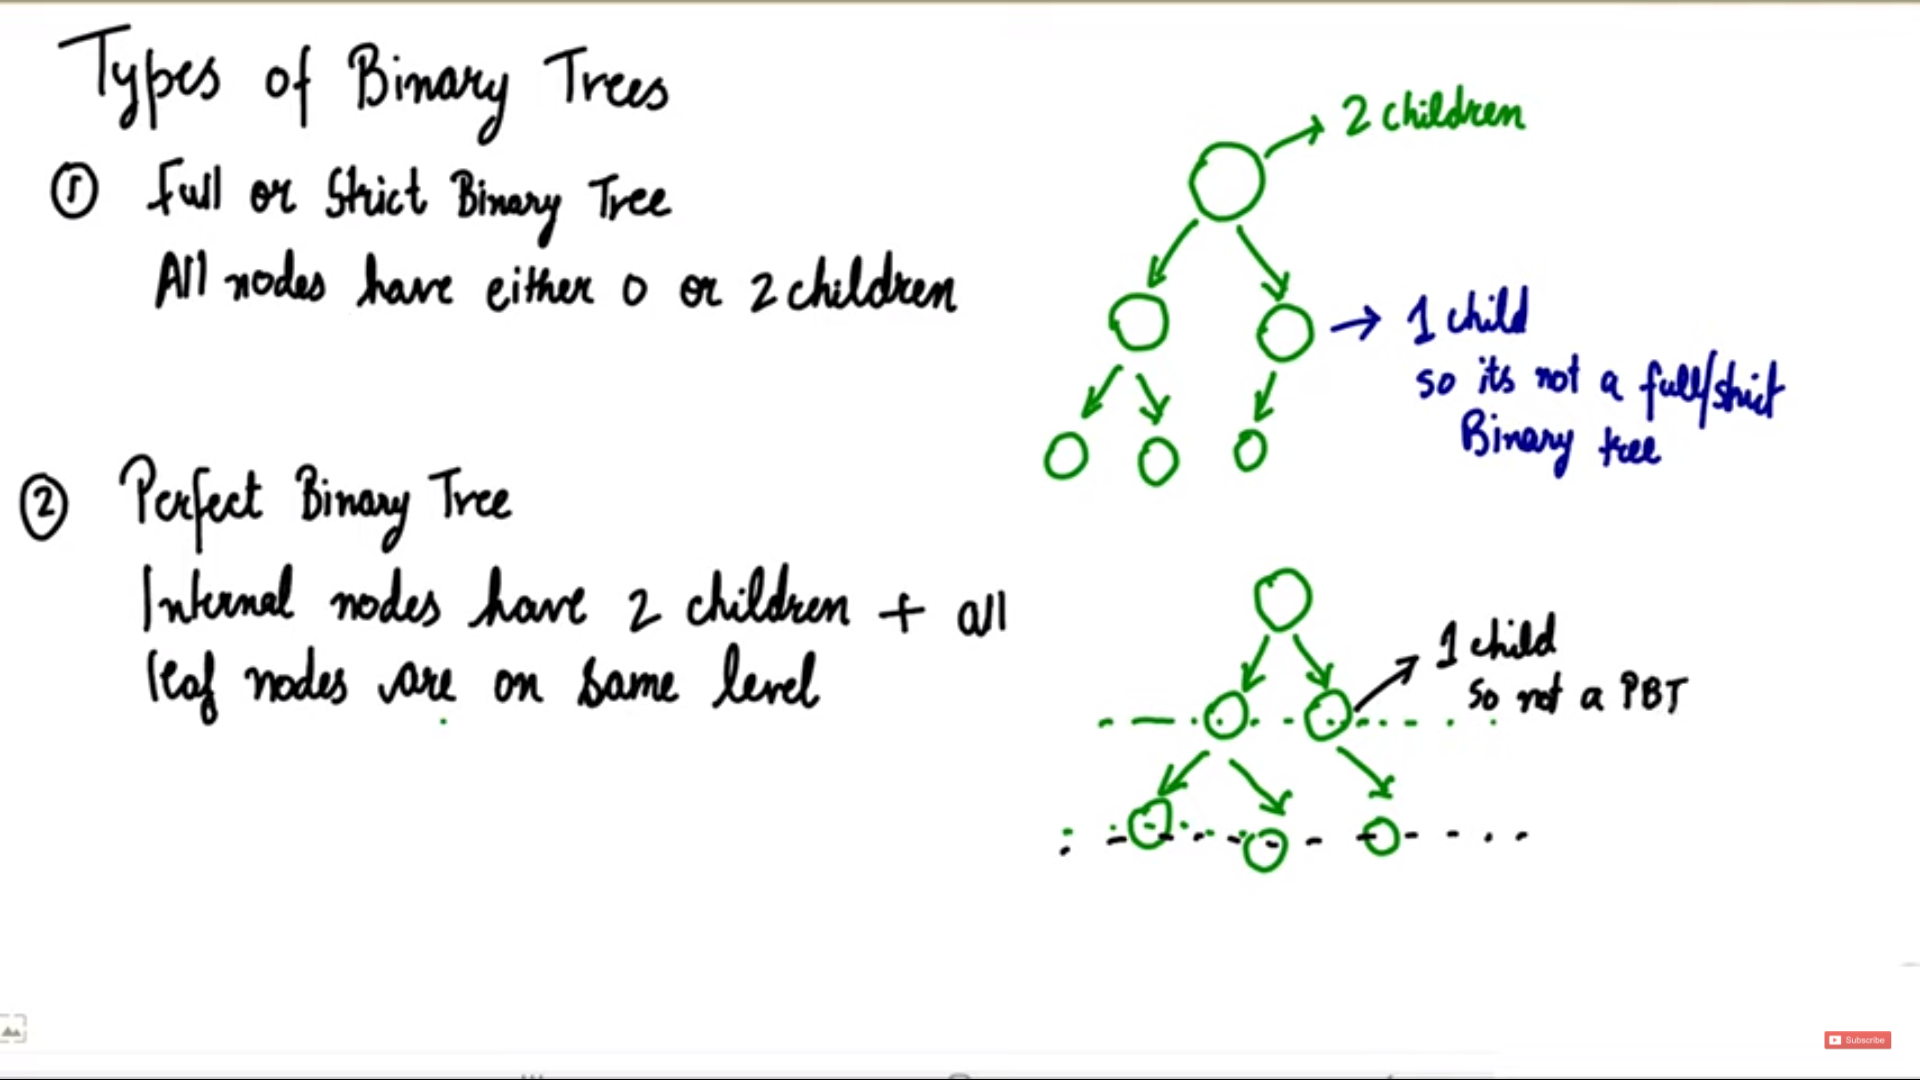 Types of Binary Trees
① Full or Strict Binary Tree
All nodes have either 0 or 2 children
2 children
1 child
so its not a full/strict
Binary tree
② Perfect Binary Tree
Internal nodes have 2 children + all
leaf nodes are on same level
1 child
so not a PBT
Subscribe